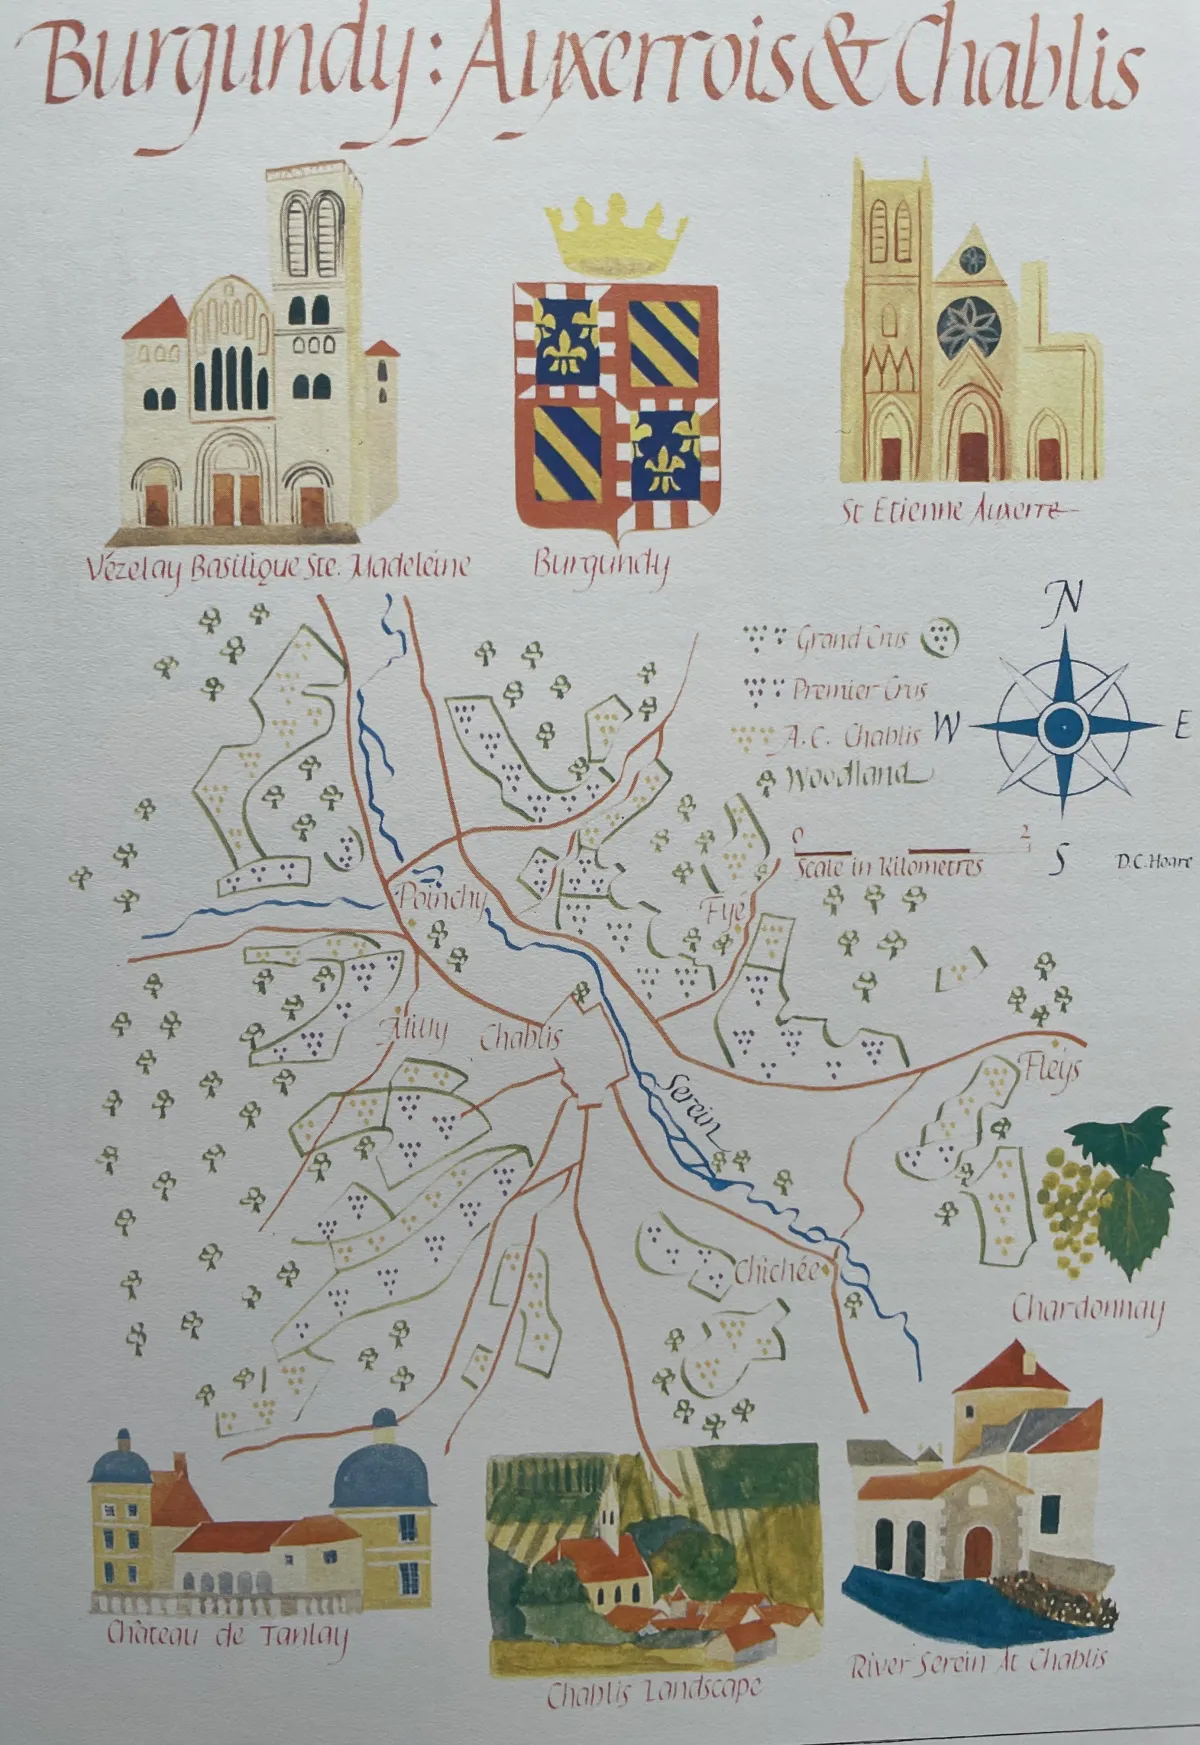 Burgundy: Auxerrois & Chablis
Vézelay Basilique Ste. Madeleine
Burgundy
St Etienne Auxerre
N
W
E
S
Grand Crus
Premier Crus
A.C. Chablis
Woodland
0
2
Scale in Kilometres
D.C. Hoare
Poinchy
Fyé
Milly
Chablis
Serein
Fleys
Chichée
Chardonnay
Château de Tanlay
Chablis Landscape
River Serein At Chablis